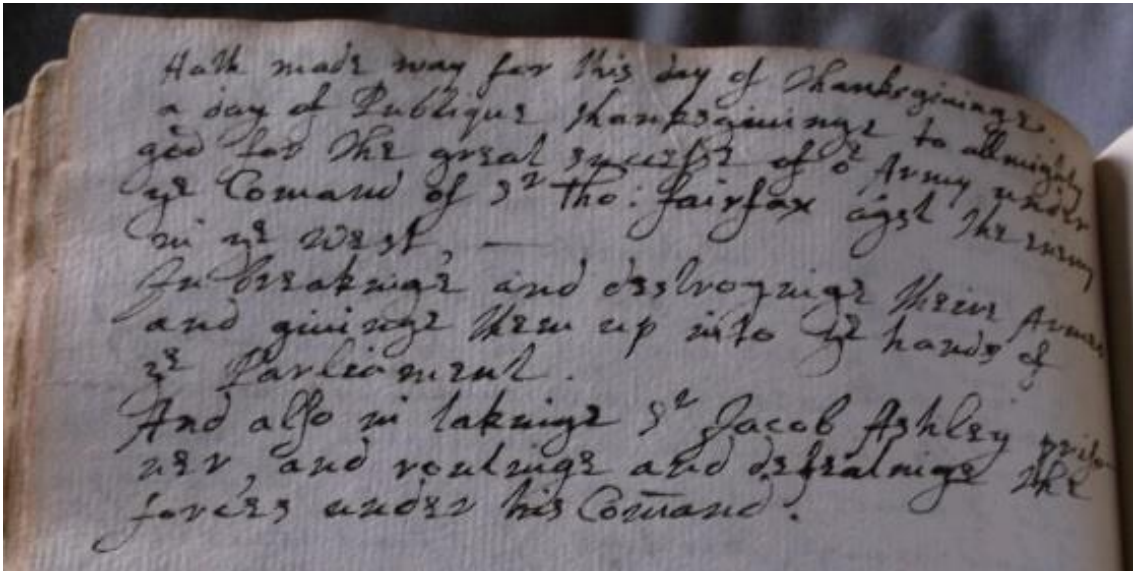 Hath made way for this day of Thanksgiuinge.
a day of Publique thanksgiuinge to allmighty
god for the great successe of oʳ Army under
yᵉ Comand of Sʳ Tho: fairfax agst the enemy
in yᵉ West, —
In breakinge and destroyinge theire Armes
and giuinge them up into yᵉ hands of
yᵉ Parliament.
And also in takinge Sʳ Jacob Ashley priso-
ner, and routinge and defeatinge the
forces under his Com̄and.